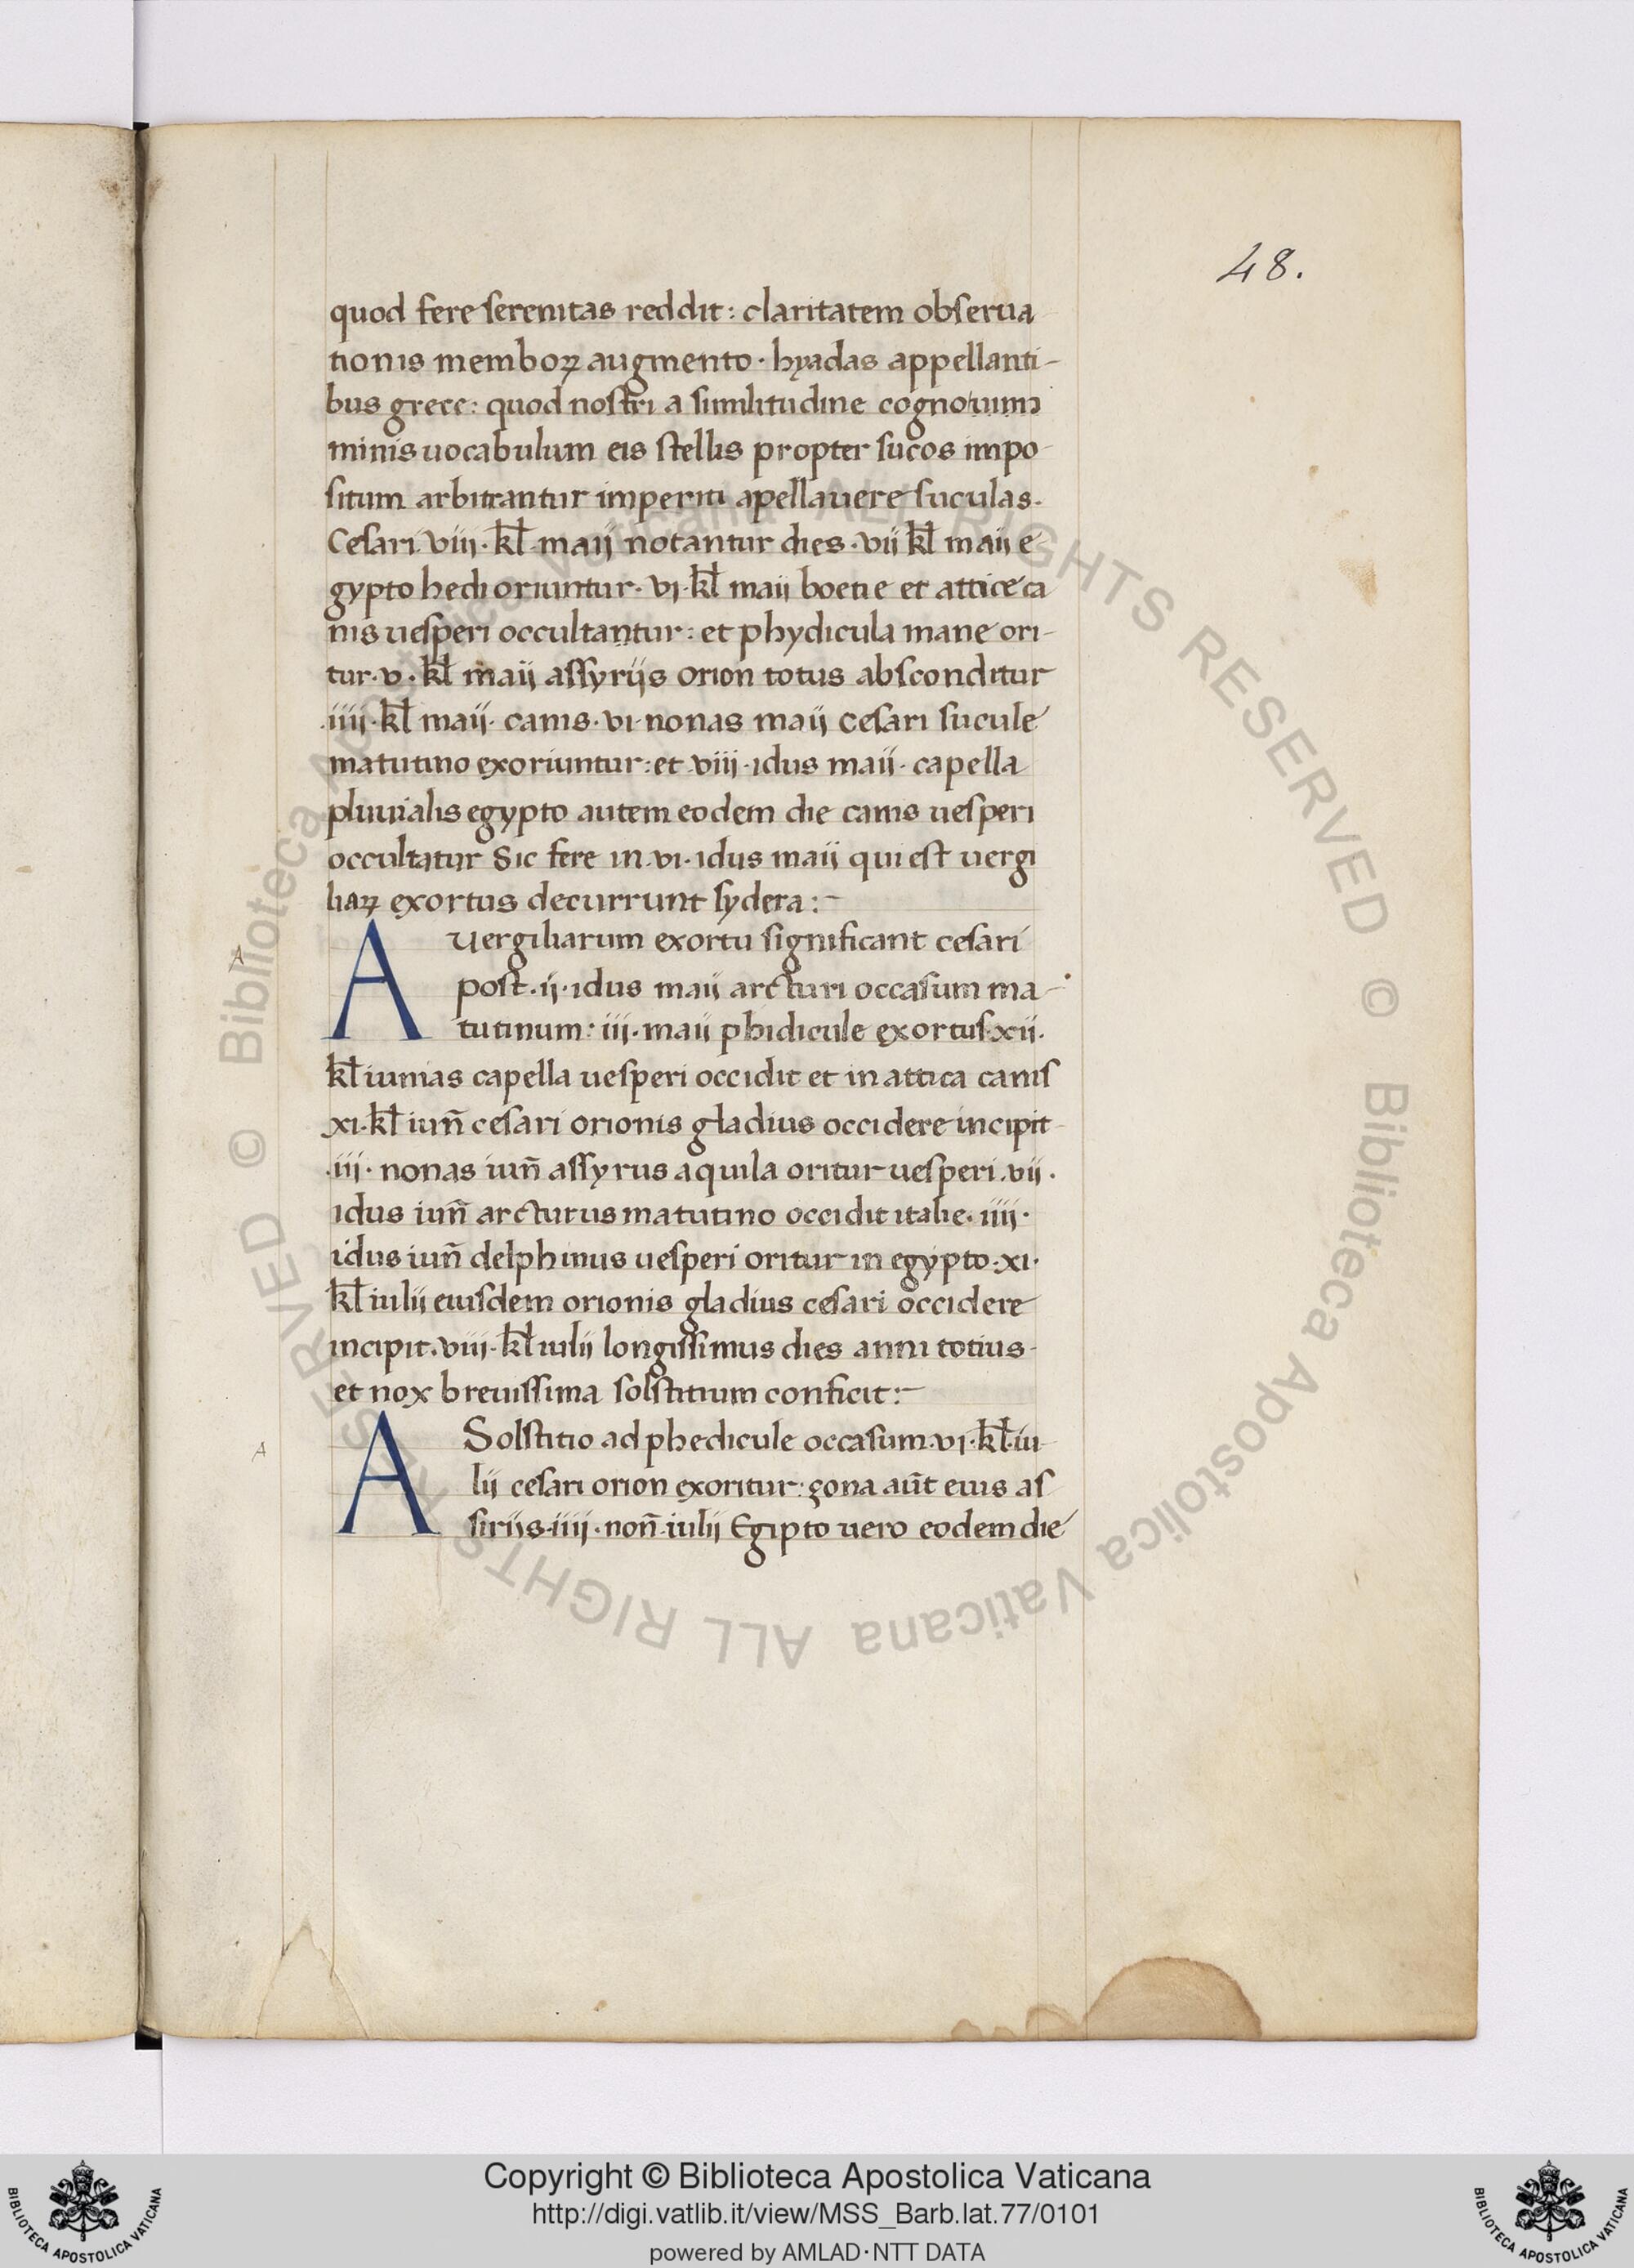 48.
quod fere serenitas reddit: claritatem obserua
tionis memboꝝ augmento · hyadas appellanti-
bus grece: quod nostri a similitudine
minis uocabulum eis stellis propter sucos impo-
situm arbitrantur imperiti apellauere suculas.
Cesari viii · kł maii notantur dies · vii kł maii e-
gypto hedi oriuntur · vi · kł maii boetie et attice ca
nis uesperi occultantur: et phydicula mane ori-
tur · v · kł maii assyriis orion totus absconditur
· iiii · kł maii · canis · vi · nonas maii cesari sucule
matutino exoriuntur: et viii · idus maii · capella
pluuialis egypto autem eodem die canis uesperi
occultatur Sic fere in · vi · idus maii qui est uergi
liaꝝ exortus decurrunt sydera:-
A
A Uergiliarum exortu significant cesari
post · ii · idus maii arcturi occasum ma-
tutinum: iii · maii phidicule exortus · xii ·
kł iunias capella uesperi occidit et in attica canis
xi · kł iuñ cesari orionis gladius occidere incipit
· iii · nonas iuñ assyrus aquila oritur uesperi · vii ·
idus iuñ arcturus matutino occidit italie · iiii ·
idus iuñ delphinus uesperi oritur in egypto: xi ·
kł iulii eiusdem orionis gladius cesari occidere
incipit · viii · kł iulii longissimus dies anni totius
et nox breuissima solstitium conficit:-
A
A Solstitio ad phedicule occasum · vi · kł · iu-
lii cesari orion exoritur: çona aũt eius as
siriis · iiii · noñ · iulii Egipto uero eodem die
© Biblioteca Apostolica Vaticana ALL RIGHTS RESERVED © Biblioteca Apostolica Vaticana ALL RIGHTS RESERVED
BIBLIOTECA APOSTOLICA VATICANA
Copyright © Biblioteca Apostolica Vaticana
http://digi.vatlib.it/view/MSS_Barb.lat.77/0101
powered by AMLAD·NTT DATA
BIBLIOTECA APOSTOLICA VATICANA